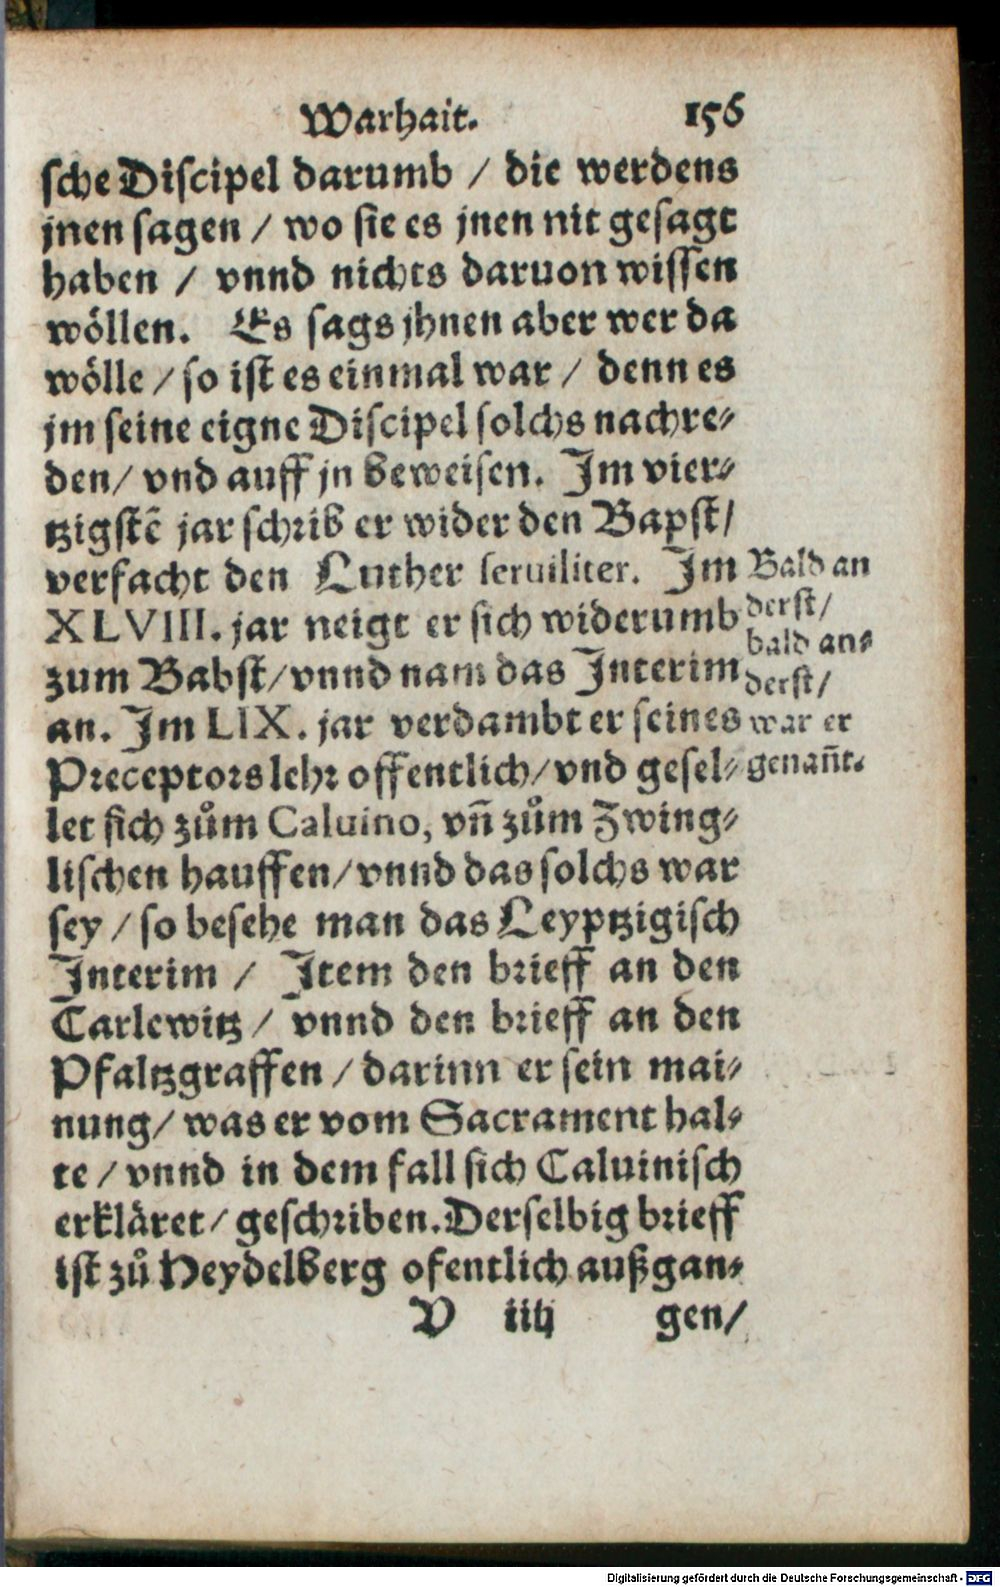 Warhait. 156
sche Discipel darumb / die werdens
jnen sagen / wo sie es jnen nit gesagt
haben / vnnd nichts daruon wissen
wöllen. Es sags jhnen aber wer da
wölle / so ist es einmal war / denn es
jm seine eigne Discipel solchs nachre⸗
den / vnd auff jn beweisen. Im vier⸗
tzigstē jar schrib er wider den Bapst /
verfacht den Luther seruiliter. Im
XLVIII. jar neigt er sich widerumb
zum Babst / vnnd nam das Interim
an. Im LIX. jar verdambt er seines
Preceptors lehr offentlich / vnd gesel⸗
let sich zům Caluino, vñ zům Zwing⸗
lischen hauffen / vnnd das solchs war
sey / so besehe man das Leyptzigisch
Interim / Item den brieff an den
Carlewitz / vnnd den brieff an den
Pfaltzgraffen / darinn er sein mai⸗
nung / was er vom Sacrament hal⸗
te / vnnd in dem fall sich Caluinisch
erkläret / geschriben. Derselbig brieff
ist zů Heydelberg ofentlich außgan⸗
V iiij gen /
Bald an
derst /
bald an⸗
derst /
war er
genañt.
Digitalisierung gefördert durch die Deutsche Forschungsgemeinschaft - DFG